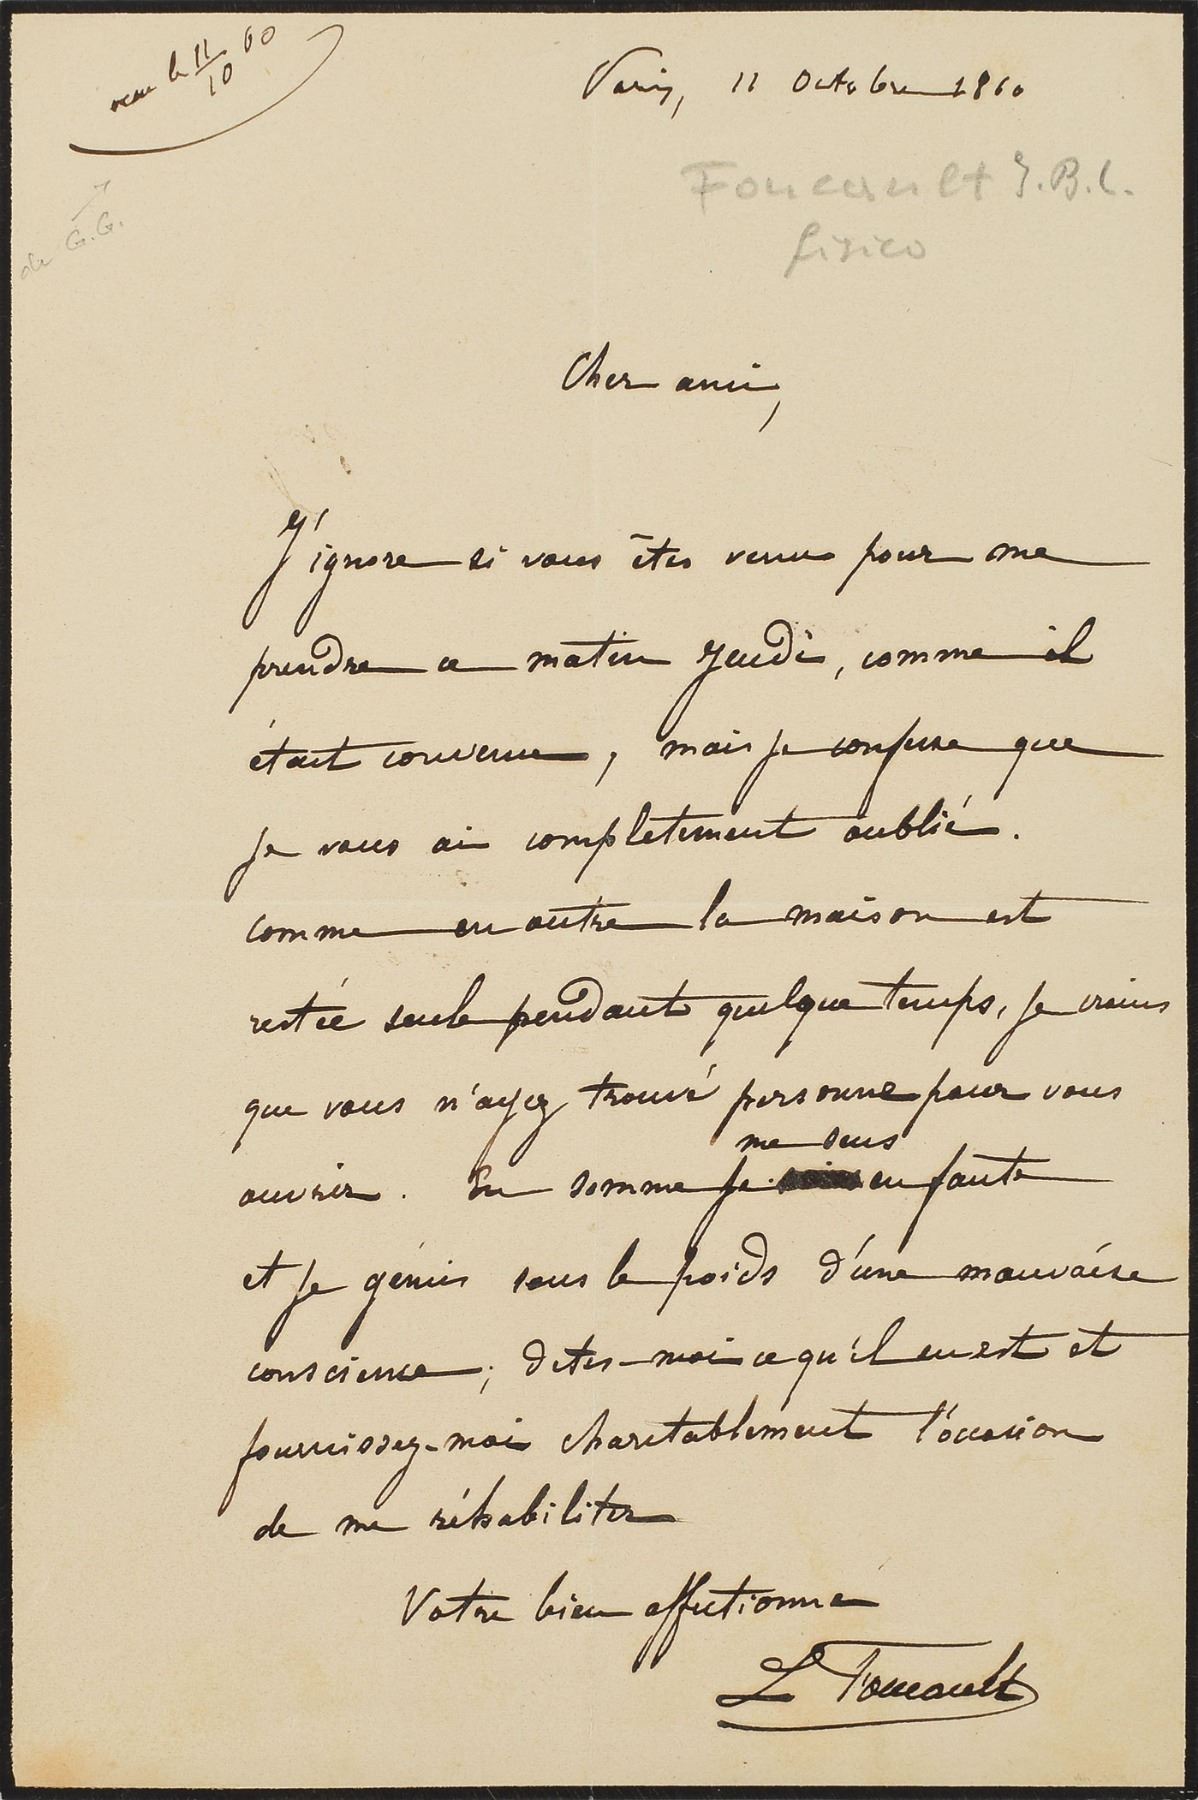 reçu le 11/10 60
Paris, 11 Octobre 1860
Foucault J.B.L.
fisico
de G.G.
Cher ami,
J'ignore si vous êtes venu pour me
prendre ce matin Jeudi, comme il
était convenu, mais je confesse que
je vous ai completement oublié.
comme en outre la maison est
restée seule pendant quelque temps, je crains
que vous n'ayez trouvé personne pour vous
me sens
ouvrir. En somme je en faute
et je gémis sous le poids d'une mauvaise
conscience; dites-moi ce qu'il en est et
fournissez-moi charitablement l'occasion
de me réhabiliter
Votre bien affectionné
L Foucault